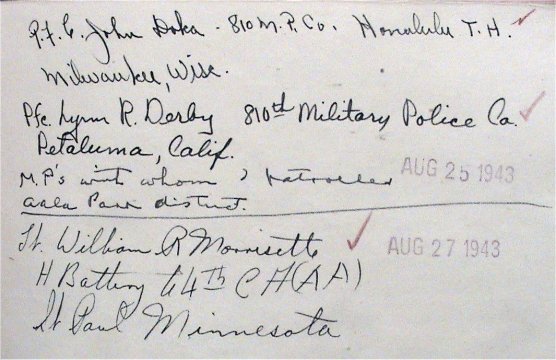 P.f.C. John Doka - 810 M.P. Co. Honolulu T.H.
Milwaukee, Wisc.
Pfc. Lynn R. Derby 810th Military Police Co.
Petaluma, Calif.
M.P's with whom I patrolled AUG 25 1943
aala Park district.
Lt. William R Morrisette AUG 27 1943
H Battery 64th C A (AA)
St Paul Minnesota